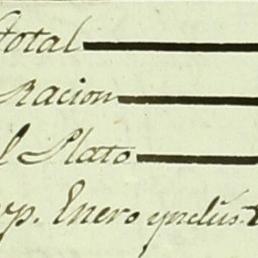 total
Racion
l Plato
vp. Enero ynclus.